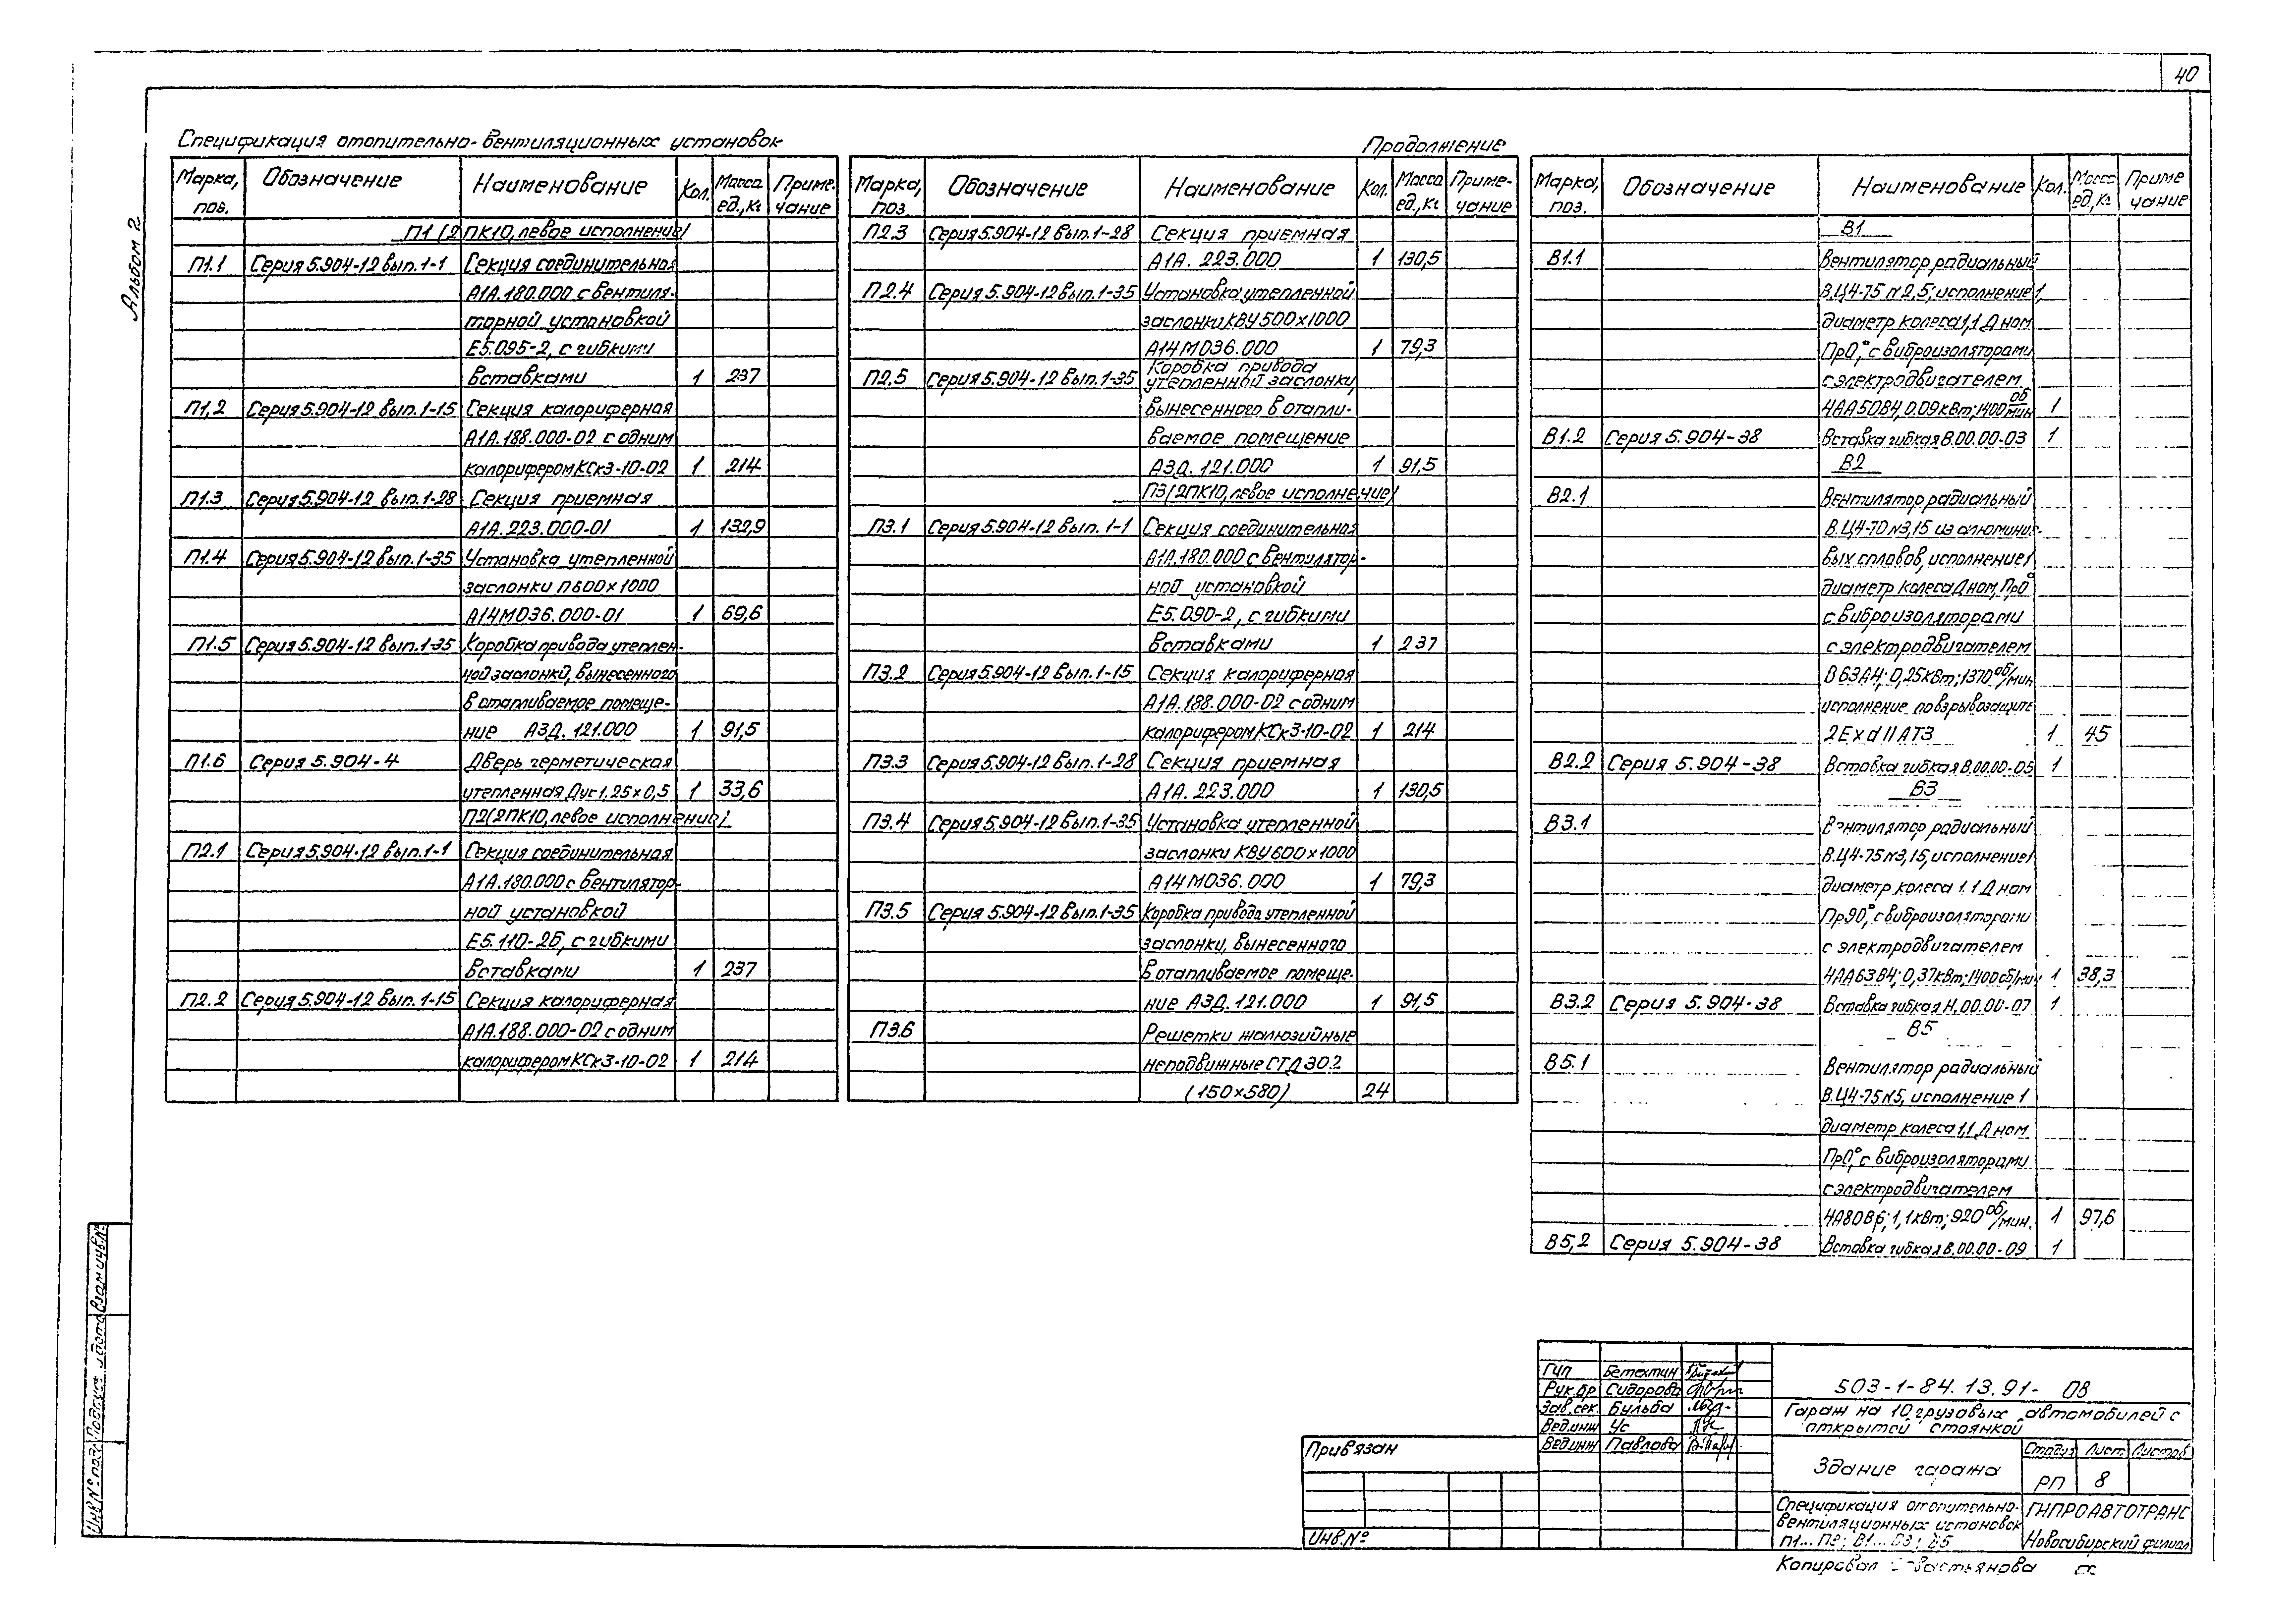 40
Альбом 2
Спецификация отопительно-вентиляционных установок
Марка, поз. Обозначение Наименование Кол. Масса ед., кг Приме-чание
П1 (2ПК10, левое исполнение)
П1.1 Серия 5.904-12 вып.1-1 Секция соединительная
А1А.180.000 с вентиля-
торной установкой
Е5.095-2, с гибкими
вставками 1 237
П1,2 Серия 5.904-12 вып.1-15 Секция калориферная
А1А.188.000-02 с одним
калорифером КСк3-10-02 1 214
П1.3 Серия 5.904-12 вып.1-28 Секция приемная
А1А.223.000-01 1 132,9
П1.4 Серия 5.904-12 вып.1-35 Установка утепленной
заслонки П600х1000
А14М036.000-01 1 69,6
П1.5 Серия 5.904-12 вып.1-35 Коробка привода утеплен-
ной заслонкд, вынесенного
в отапливаемое помеще-
ние АЗД.121.000 1 91,5
П1.6 Серия 5.904-4 Дверь герметическая
утепленная Дус1.25х0,5 1 33,6
П2(2ПК10, левое исполнение)
П2.1 Серия 5.904-12 вып.1-1 Секция соединительная
А1А.180.000 с вентилятор-
ной установкой
Е5.110-2б, с гибкими
вставками 1 237
П2.2 Серия 5.904-12 вып.1-15 Секция калориферная
А1А.188.000-02 с одним
калорифером КСк3-10-02 1 214
Продолжение
Марка, поз. Обозначение Наименование Кол. Масса ед., кг Приме-чание
П2.3 Серия 5.904-12 вып.1-28 Секция приемная
А1А. 223.000 1 130,5
П2.4 Серия 5.904-12 вып.1-35 Установка утепленной
заслонки КВУ 500х1000
А14М036.000 1 79,3
П2.5 Серия 5.904-12 вып.1-35 Коробка привода
утепленной заслонки,
вынесенного в отапли-
ваемое помещение
АЗД. 121.000 1 91,5
П3(2ПК10, левое исполнение)
П3.1 Серия 5.904-12 вып. 1-1 Секция соединительная
А1А.180.000 с вентилятор-
ной установкой
Е5.090-2, с гибкими
вставками 1 237
П3.2 Серия 5.904-12 вып.1-15 Секция калориферная
А1А.188.000-02 с одним
калорифером КСк3-10-02 1 214
П3.3 Серия 5.904-12 вып.1-28 Секция приемная
А1А. 223.000 1 130,5
П3.4 Серия 5.904-12 вып.1-35 Установка утепленной
заслонки КВУ 600х1000
А14М036.000 1 79,3
П3.5 Серия 5.904-12 вып.1-35 Коробка привода утепленной
заслонки, вынесенного
в отапливаемое помеще-
ние АЗД.121.000 1 91,5
П3.6 Решетки жалюзийные
неподвижные СТД 302
(150х580) 24
Марка, поз. Обозначение Наименование Кол. Масса ед., кг Приме чание
В1
В1.1 Вентилятор радиальный
В.Ц4-75 №2,5; исполнение 1,
диаметр колеса 1,1 Дном
Пр0°, с виброизоляторами
с электродвигателем
4АА50В4, 0.09кВт; 1400 об/мин 1
В1.2 Серия 5.904-38 Вставка гибкая В.00.00-03 1
В2
В2.1 Вентилятор радиальный
В.Ц4-70 №3,15 из алюминие-
вых сплавов, исполнение 1
диаметр колеса Дном, Пр0°
с виброизоляторами
с электродвигателем
В63А4; 0,25кВт; 1370 об/мин
исполнение по взрывозащите
2ЕxdIIАТ3 1 45
В2.2 Серия 5.904-38 Вставка гибкая В.00.00-05 1
В3
В3.1 Вентилятор радиальный
В.Ц4-75 №3,15, исполнение 1
диаметр колеса 1.1 Дном
Пр90°, с виброизоляторами
с электродвигателем
4АА63В4; 0,37кВт; 1400 об/мин 1 38,3
В3.2 Серия 5.904-38 Вставка гибкая Н.00.00-07 1
В5
В5.1 Вентилятор радиальный
В.Ц4-75 №5, исполнение 1
диаметр колеса 1,1 Дном
Пр0°, с виброизоляторами
с электродвигателем
4А80В6; 1,1кВт; 920 об/мин. 1 97,6
В5,2 Серия 5.904-38 Вставка гибкая В.00.00-09 1
Взам инв.№
Подпись и дата
Инв № подл
Гип Бетехтин
Рук.бр Сидорова
Зав.сек. Бульба
Вед.инж Ус
Вед.инж Павлова
Привязан
Инв.№
503-1-84.13.91- ОВ
Гараж на 10 грузовых автомобилей с
открытой стоянкой
Здание гаража
Стадия Лист Листов
РП 8
Спецификация отопительно-
вентиляционных установок
П1...П3; В1...В3; В5
ГИПРОАВТОТРАНС
Новосибирский филиал
Копировал